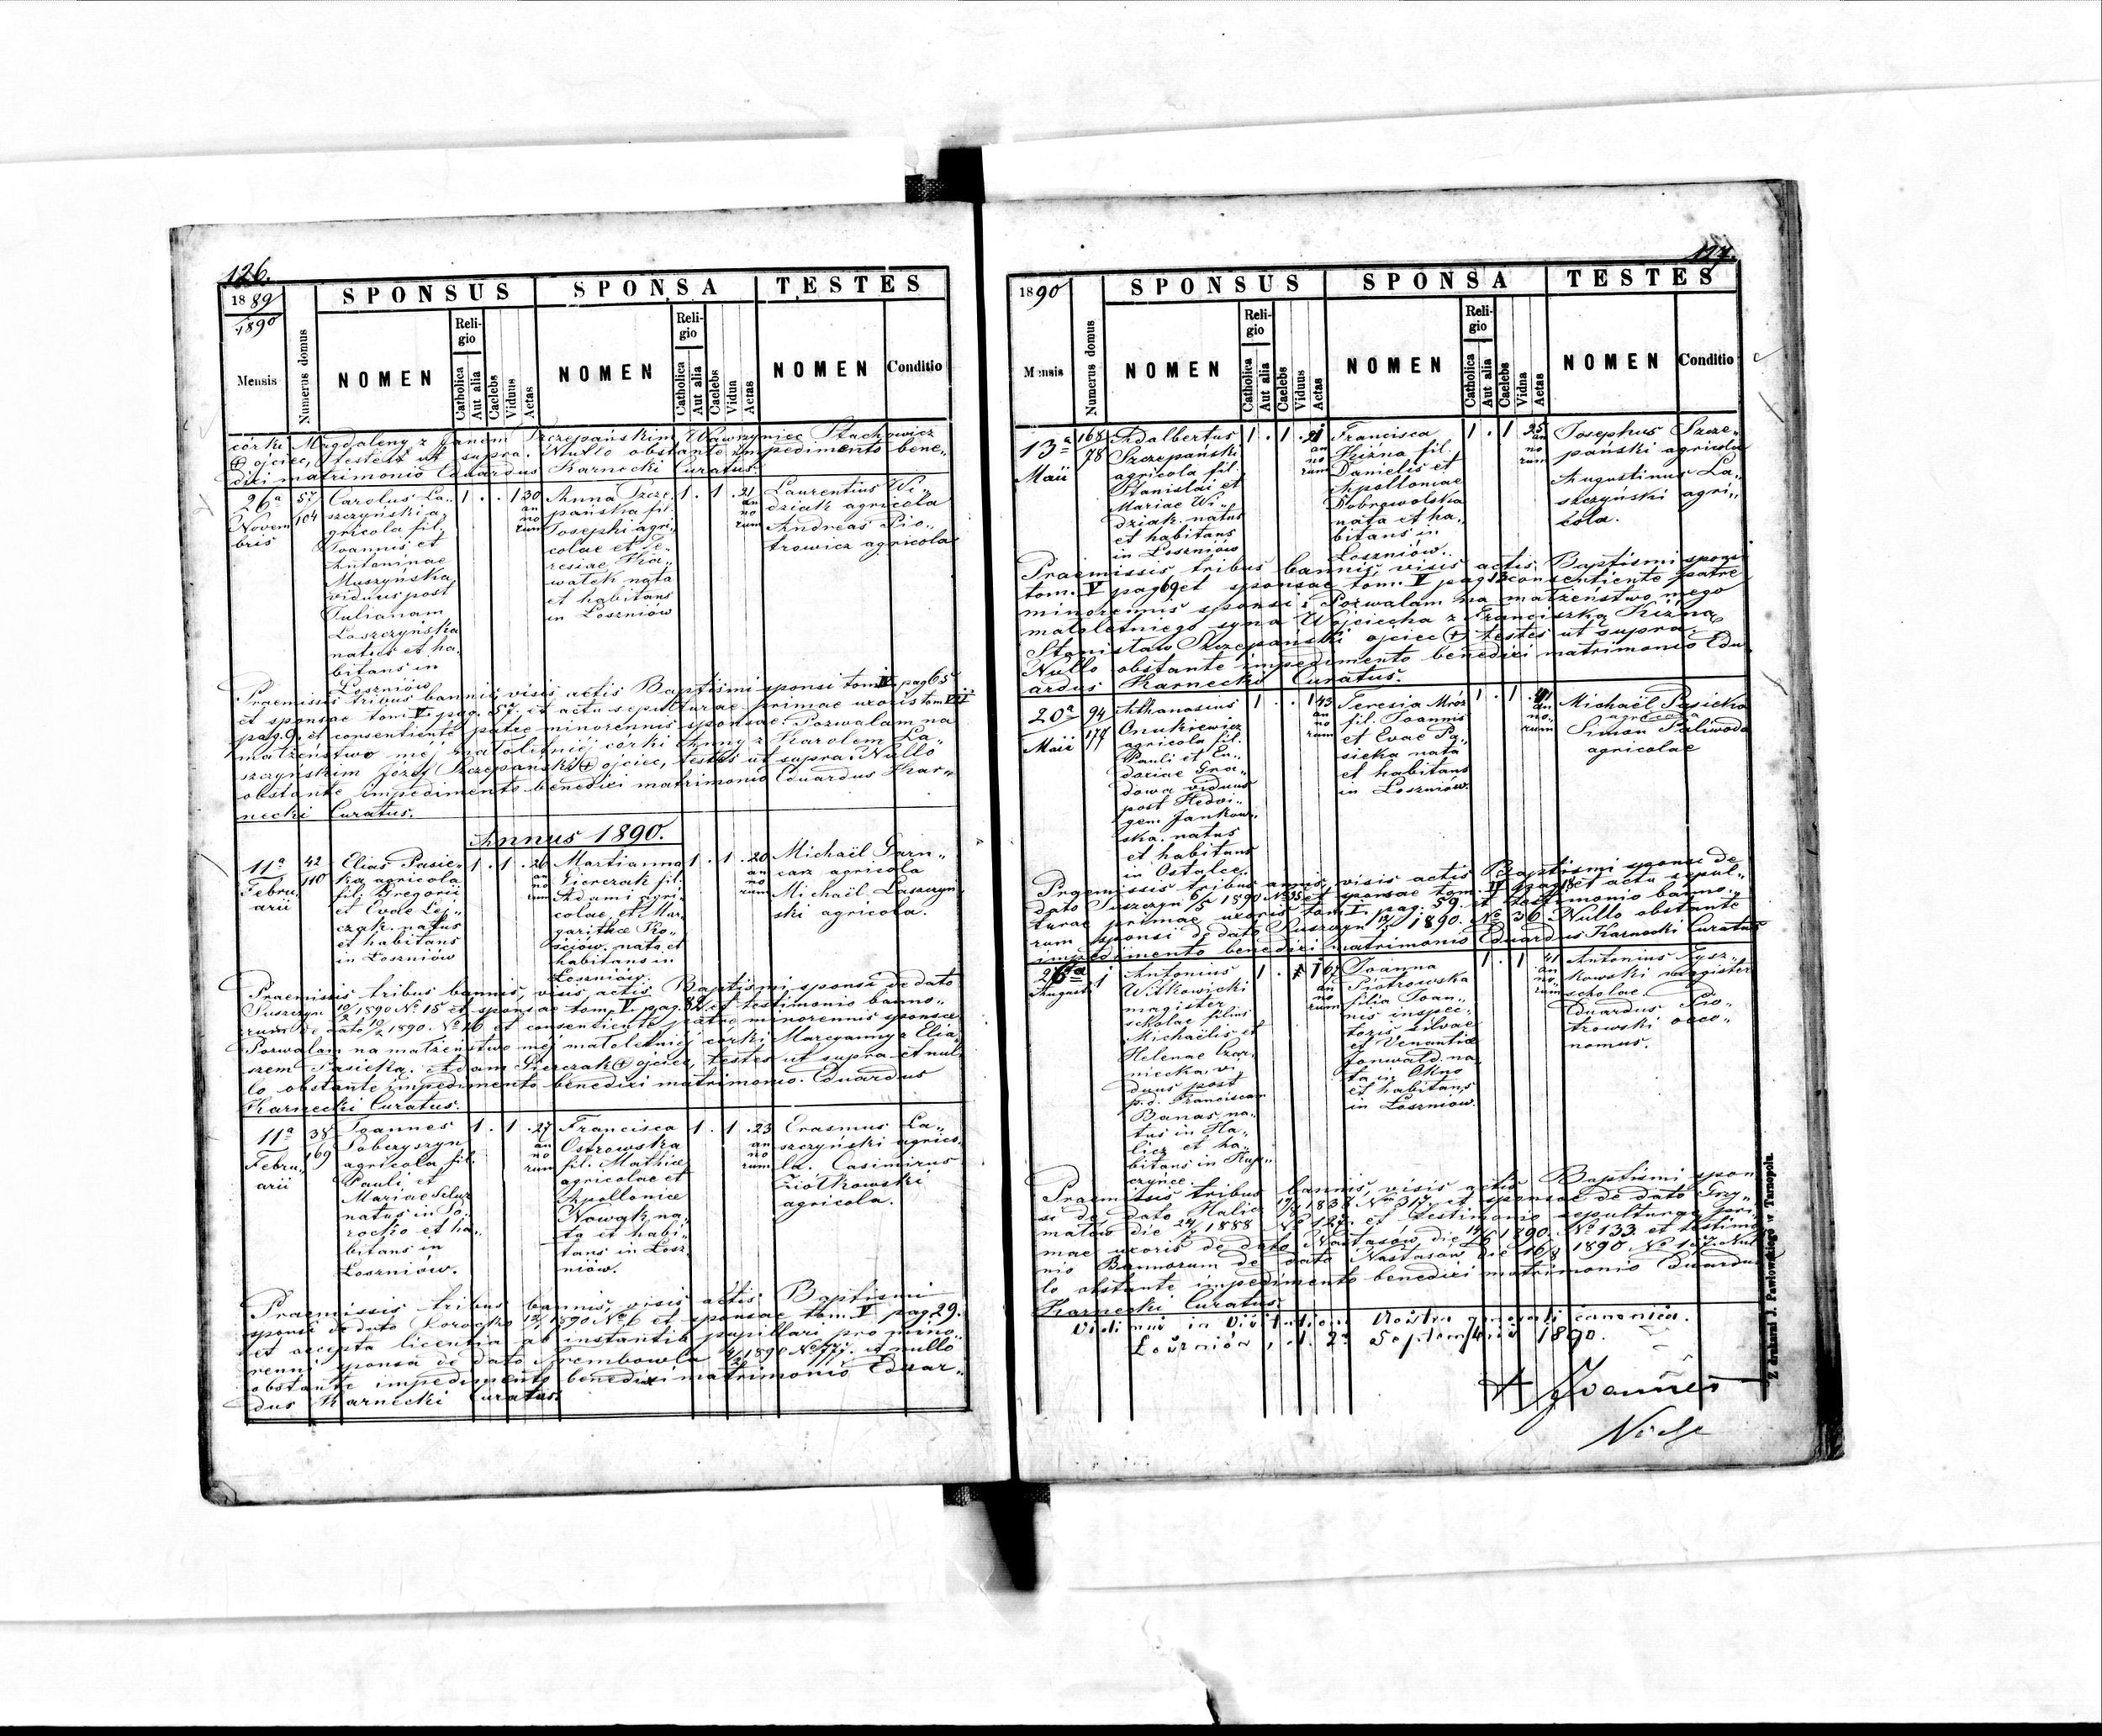 126.
1889
1890
SPONSUS SPONSA TESTES
Mensis
Numerus domus
NOMEN
Reli-
gio
Catholica
Aut alia
Caelebs
Viduus
Aetas
NOMEN
Reli-
gio
Catholica
Aut alia
Caelebs
Vidua
Aetas
NOMEN
Conditio
córki Magdaleny z Janem Szczepańskim, Wawrzyniec Stachowicz
ojciec, testes ut supra. Nullo obstante impedimento bene„
dixi matrimonio Eduardus Karnecki Curatus.
26ª
Novem
bris
57
104
Carolus La„
szczyński a„
gricola fil.
Joannis et
Antoninae
Muszyńska,
viduus post
Julianam
Loszczyńska
natus et ha„
bitans in
Loszniów
1 . . 1 30
an
no
rum
Anna Szcze„
pańska fil.
Josephi agri„
colae et Te„
resiae Ko„
watek nata
et habitans
in Loszniów
1 . 1 . 21
an
no
rum
Laurentius Wi„
dziak agricola
Andreas Pio„
trowicz agricola
Praemissis tribus bannis, visis actis Baptismi sponsi tom IV pag 65
et sponsae tom V. pag. 57. et actu sepulturae primae uxoris tom VII
pag. 9. et consentiente patre minorennis sponsae. Pozwalam na
małżeństwo méj małoletniéj córki Anny z Karolem La„
szczyńskim Józef Szczepański ojciec, testes ut supra. Nullo
obstante impedimento benedixi matrimonio Eduardus Kar„
necki Curatus.
Annus 1890.
11ª
Febru„
arii
42
110
Elias Pasie„
ka agricola
fil. Gregorii
et Evae Lep„
czak. natus
et habitans
in Loszniów
1 . 1 . 26
an
no
rum
Marianna
Pierczak fil.
Adami agri„
colae et Mar„
garithae Ko„
ściów. nata et
habitans in
Loszniów.
1 . 1 . 20
an
no
rum
Michaël Garn„
carz agricola
Michaël Laszczyń„
ski agricola.
Praemissis tribus bannis, visis actis Baptismi sponsi de dato
Suszczyn 10/2 1890 № 15 et sponsae tom V pag. 82 et testimonio banno„
rum de dato 10/2 1890 № 16 et consentiente patre minorennis sponsae
Pozwalam na małżeństwo méj małoletniéj córki Maryanny z Elia„
szem Pasieką. Adam Pierczak ojciec, testes ut supra et nul„
lo obstante impedimento benedixi matrimonio. Eduardus
Karnecki Curatus.
11ª
Febru„
arii
38
169
Joannes
Sobczyszyn
agricola fil.
Pauli et
Mariae
natus in So„
rocko et ha„
bitans in
Loszniów.
1 . 1 . 27
an
no
rum
Francisca
Ostrowska
fil. Mathiae
agricolae et
Apolloniae
Nowak na„
ta et habi„
tans in Losz„
niów.
1 . 1 . 23
an
no
rum
Erasmus La„
szczyński agrico„
la. Casimirus
Ziołkowski
agricola.
Praemissis tribus bannis, visis actis Baptismi
sponsi de dato Sorocko 12/1 1890 № 6 et sponsae tom. V pag. 29.
et accepta licentia ab instantia pupillari pro mino„
renni sponsa de dato Trembowla 4/2 1890 № 777. et nullo
obstante impedimento benedixi matrimonio Eduar„
dus Karnecki Curatus.
127.
1890
SPONSUS SPONSA TESTES
Mensis
Numerus domus
NOMEN
Reli-
gio
Catholica
Aut alia
Caelebs
Viduus
Aetas
NOMEN
Reli-
gio
Catholica
Aut alia
Caelebs
Vidua
Aetas
NOMEN
Conditio
13ª
Maii
168
78
Adalbertus
Szczepański
agricola fil.
Stanislai et
Mariae Wi„
dziak. natus
et habitans
in Loszniów
1 . 1 . 21
an
no
rum
Francisca
Kizna fil.
Danielis et
Apolloniae
Dobrowolska
nata et ha„
bitans in
Loszniów.
1 . 1 25
an
no
rum
Josephus Szcze„
pański agricola
Augustinus La„
szczyński agri„
cola.
Praemissis tribus bannis, visis actis Baptismi sponsi
tom. V pag 69 et sponsae tom. V pag 13 consentiente patre
minorennis sponsi: Pozwalam na małżeństwo mego
małoletniego syna Wojciecha z Franciszką Kizną
Stanisław Szczepański ojciec testes ut supra.
Nullo obstante impedimento benedixi matrimonio Edu„
ardus Karnecki Curatus.
20ª
Maii
94
177
Athanasius
Onukiewicz
agricola fil.
Pauli et Eu„
dociae Gra„
dowa viduus
post Hedvi„
gem Jankow„
ska. natus
et habitans
in Ostalce.
1 . . 1 43
an
no
rum
Teresia Mróz
fil. Joannis
et Evae Pa„
sieka nata
et habitans
in Loszniów.
1 . 1 . 41
an
no„
rum
Michaël Pasieka
agricola
Simon Paliwoda
agricolae
Praemissis tribus annis, visis actis Baptismi sponsi de
dato Suszczyn 6/5 1890 № 35 et sponsae tom. IV pag 18 et actu sepul„
turae primae uxoris tom I. pag. 59. et testimonio banno„
rum sponsi de dato Suszczyn 1890. № 36. Nullo obstante
impedimento benedixi matrimonio Eduardus Karnecki Curatus
26ª
Augusti
1
Antonius
Witkowicki
magister
scholae filius
Michaëlis et
Helenae Czar„
niecka, vi„
duus post
p.d. Franciscam
Banas, na„
tus in Ha„
licz et ha„
bitans in Kup„
czyńce
1 . 1 67
an
no
rum
Joanna
Piotrowska
filia Joan„
nis inspec„
toris silvae
et Venantiae
Jonwald na„
ta in Okno
et habitans
in Loszniów.
1 . 1 . 41
an
no„
rum
Antonius Tysz„
kowski magister
scholae.
Eduardus Pio„
trowski oeco„
nomus.
Praemissis tribus bannis, visis actis Baptismi spon„
si de dato Halicz 1838 № 317. et sponsae de dato Grzy„
małów die 24/ 1888 № 127. et testimonio sepulturae pri„
mae uxoris de dato Nastasów die 1890. № 133. et testimo„
nio Bannorum de dato Nastasów die 16/8 1890 № 157. Nul„
lo obstante impedimento benedixi matrimonio Eduardus
Karnecki Curatus.
Vidimus in Visitatione Nostra generali canonica.
Łoszniów, d. 2. Septembris 1890.
† Joannes
Z drukarni J. Pawłowskiego w Tarnopolu.